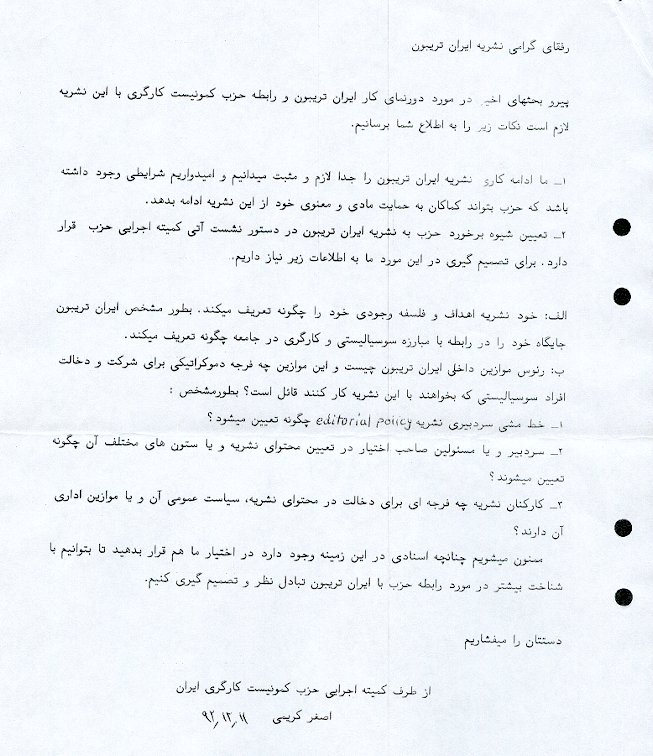 رفقای گرامی نشریه ایران تریبون
پیرو بحثهای اخیر در مورد دورنمای کار ایران تریبون و رابطه حزب کمونیست کارگری با این نشریه
لازم است نکات زیر را به اطلاع شما برسانیم.
۱ـ ما ادامه کاری نشریه ایران تریبون را جدا لازم و مثبت میدانیم و امیدواریم شرایطی وجود داشته
باشد که حزب بتواند کماکان به حمایت مادی و معنوی خود از این نشریه ادامه بدهد.
۲ـ تعیین شیوه برخورد حزب به نشریه ایران تریبون در دستور نشست آتی کمیته اجرایی حزب قرار
دارد. برای تصمیم گیری در این مورد ما به اطلاعات زیر نیاز داریم.
الف: خود نشریه اهداف و فلسفه وجودی خود را چگونه تعریف میکند. بطور مشخص ایران تریبون
جایگاه خود را در رابطه با مبارزه سوسیالیستی و کارگری در جامعه چگونه تعریف میکند.
ب: رئوس موازین داخلی ایران تریبون چیست و این موازین چه فرجه دموکراتیکی برای شرکت و دخالت
افراد سوسیالیستی که بخواهند با این نشریه کار کنند قائل است؟ بطورمشخص :
۱ـ خط مشی سردبیری نشریه editorial policy چگونه تعیین میشود؟
۲ـ سردبیر و یا مسئولین صاحب اختیار در تعیین محتوای نشریه و یا ستون های مختلف آن چگونه
تعیین میشوند؟
۳ـ کارکنان نشریه چه فرجه ای برای دخالت در محتوای نشریه، سیاست عمومی آن و یا موازین اداری
آن دارند؟
ممنون میشویم چنانچه اسنادی در این زمینه وجود دارد در اختیار ما هم قرار بدهید تا بتوانیم با
شناخت بیشتر در مورد رابطه حزب با ایران تریبون تبادل نظر و تصمیم گیری کنیم.
دستتان را میفشاریم
از طرف کمیته اجرایی حزب کمونیست کارگری ایران
اصغر کریمی ۹۲٫۱۲٫۱۱